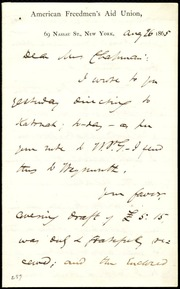 American Freedmen's Aid Union,
69 Nassau St., New York, Aug 26 1865
Dear Mrs Chapman:
I wrote to you
yesterday directing to
National; today - as per
your note to - I send
this to Weymouth.
Your favor,
covering draft of £5.15
was duly & gratefully re-
ceived; and the enclosed